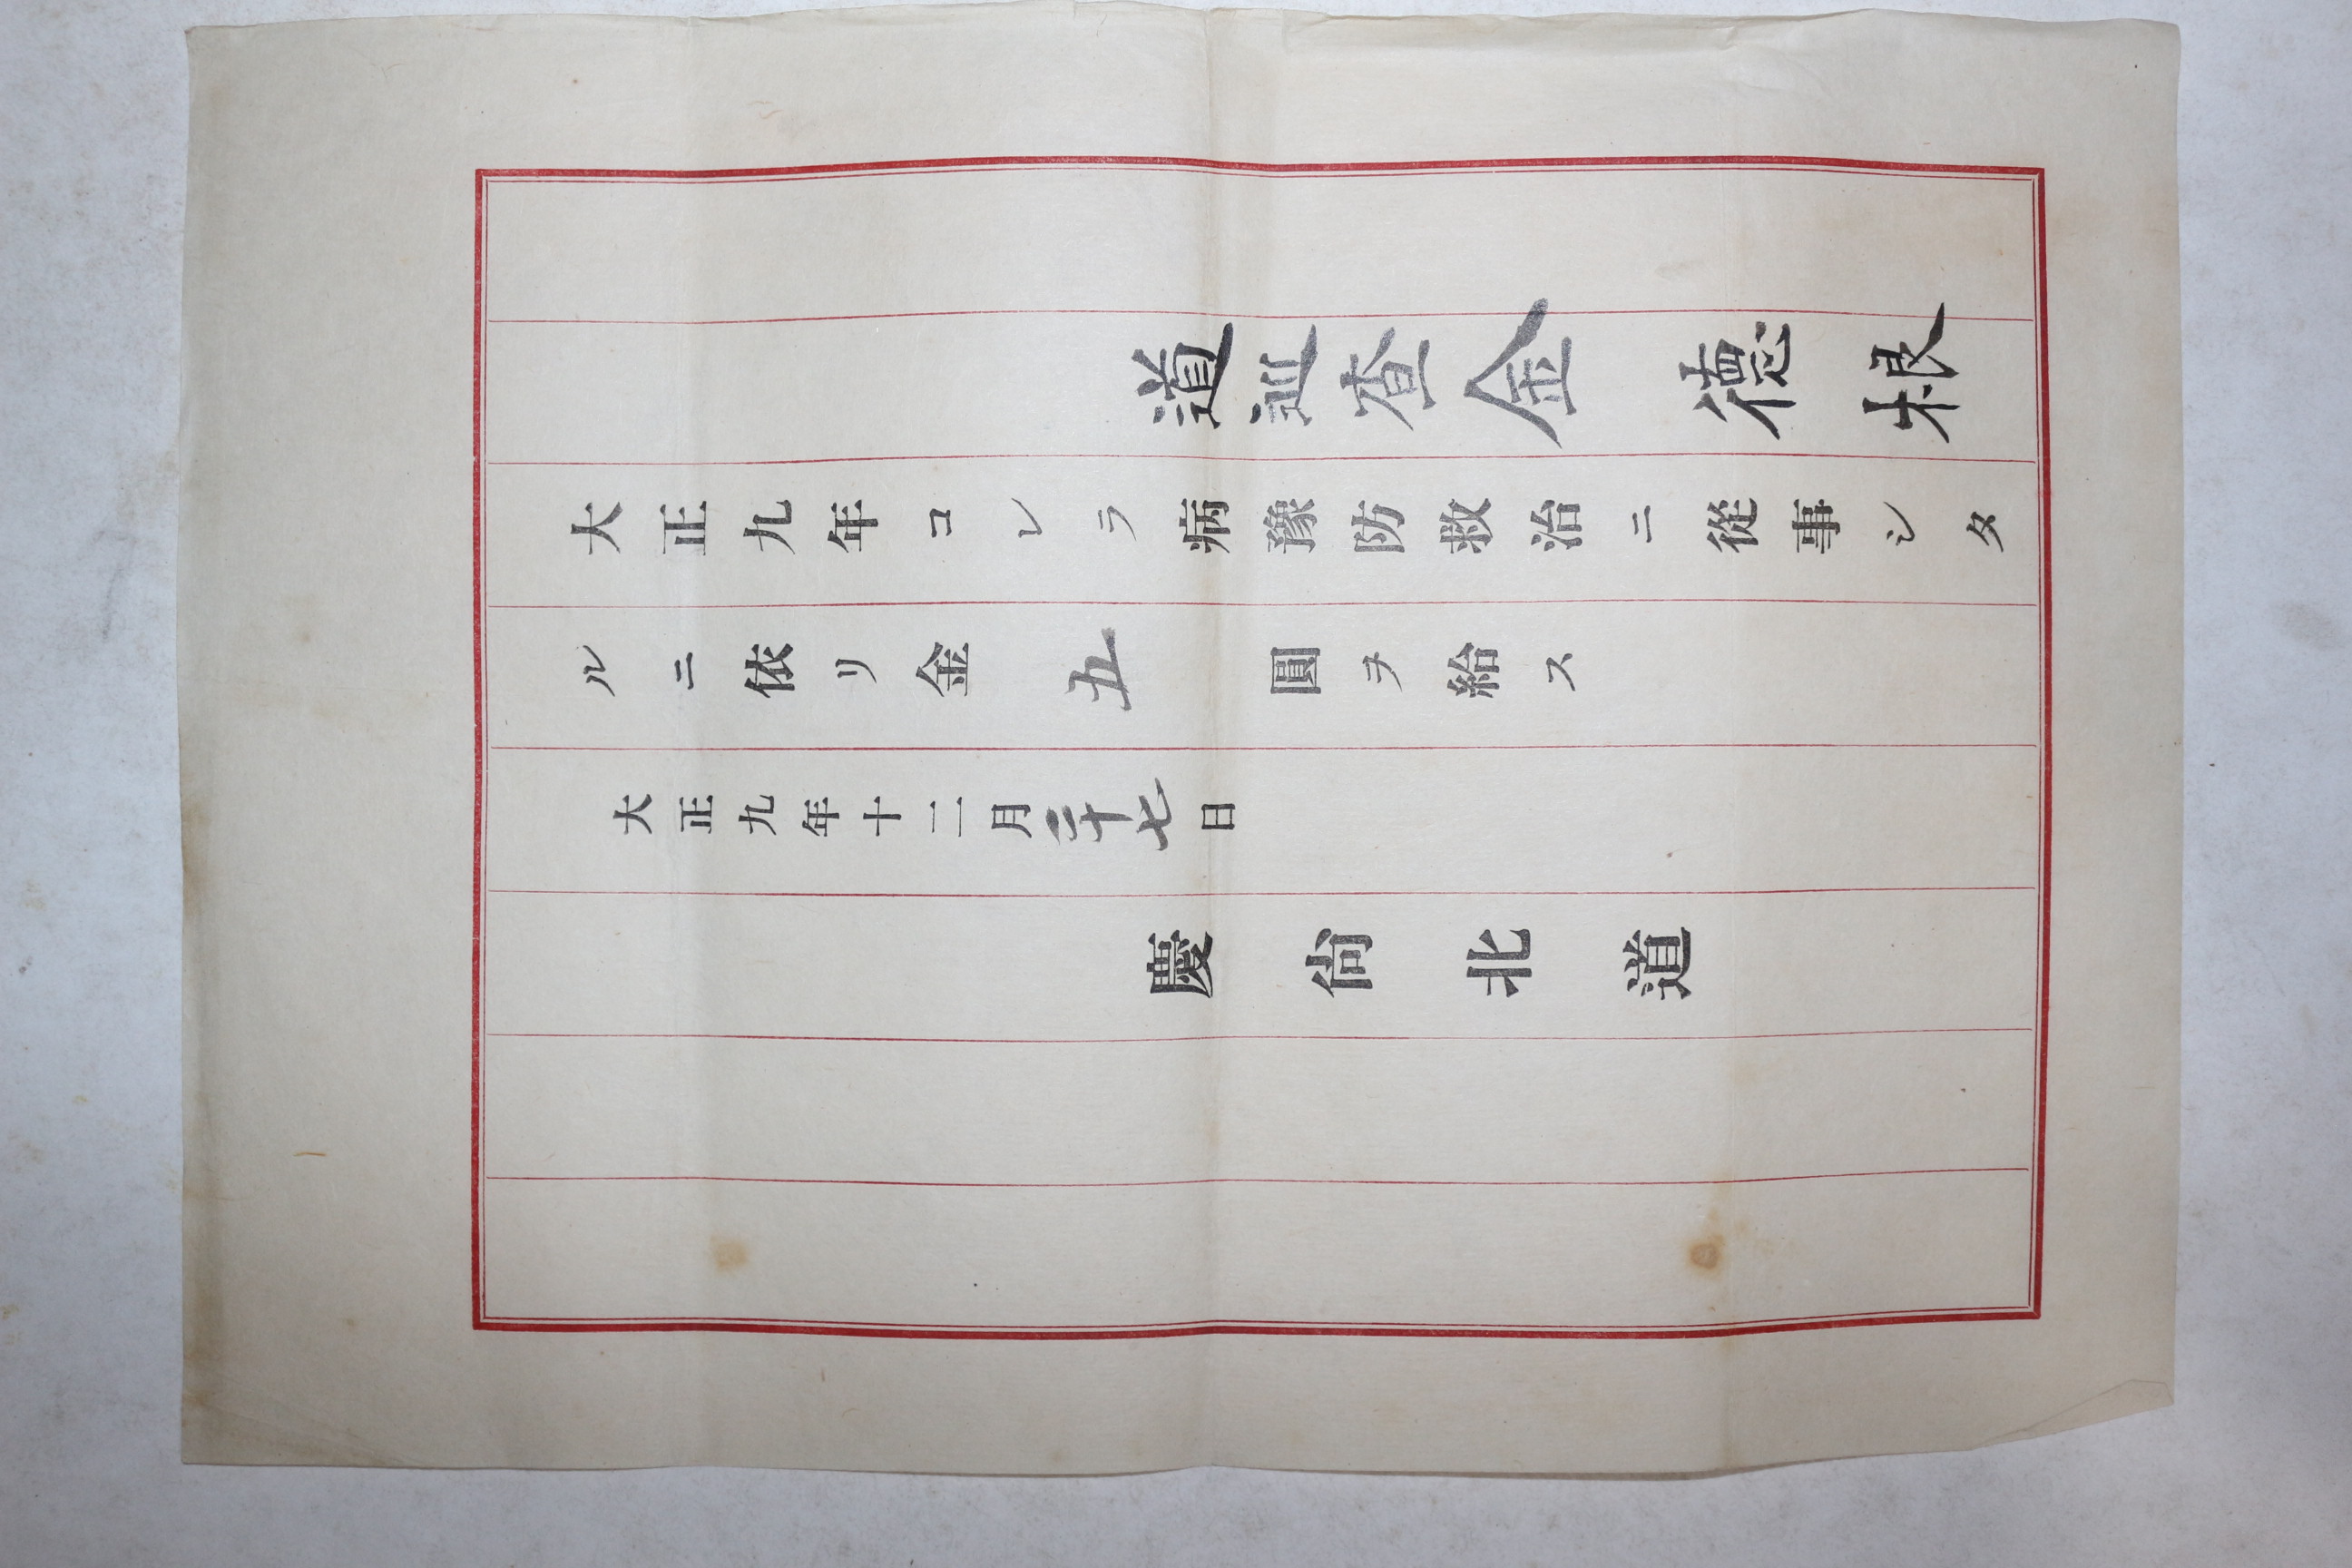 道巡查金德根
大正九年コレラ病豫防救治ニ從事シタ
ルニ依リ金五圓ヲ給ス
大正九年十二月二十七日
慶尙北道